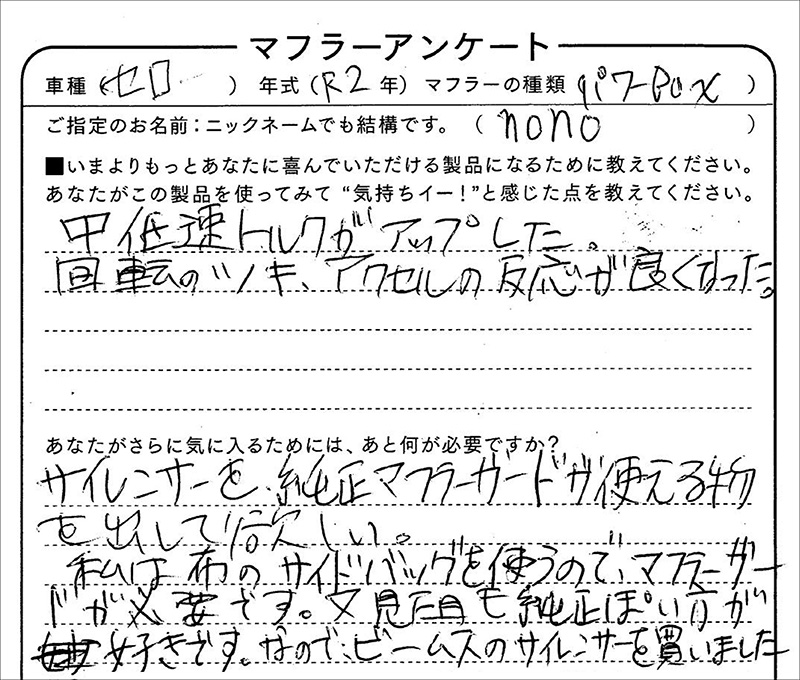 マフラーアンケート
車種(セロー) 年式(R2年) マフラーの種類 パワーBox)
ご指定のお名前：ニックネームでも結構です。(nono)
■いまよりもっとあなたに喜んでいただける製品になるために教えてください。
あなたがこの製品を使ってみて“気持ちイー！”と感じた点を教えてください。
中低速トルクがアップした。
回転のツキ、アクセルの反応が良くなった。
あなたがさらに気に入るためには、あと何が必要ですか？
サイレンサーを純正マフラーガードが使える物
を出して欲しい。
私は布のサイドバッグを使うので、マフラーガー
ドが必要です。又見た目も純正ぽい方が
好きです。なので、ビームスのサイレンサーを買いました